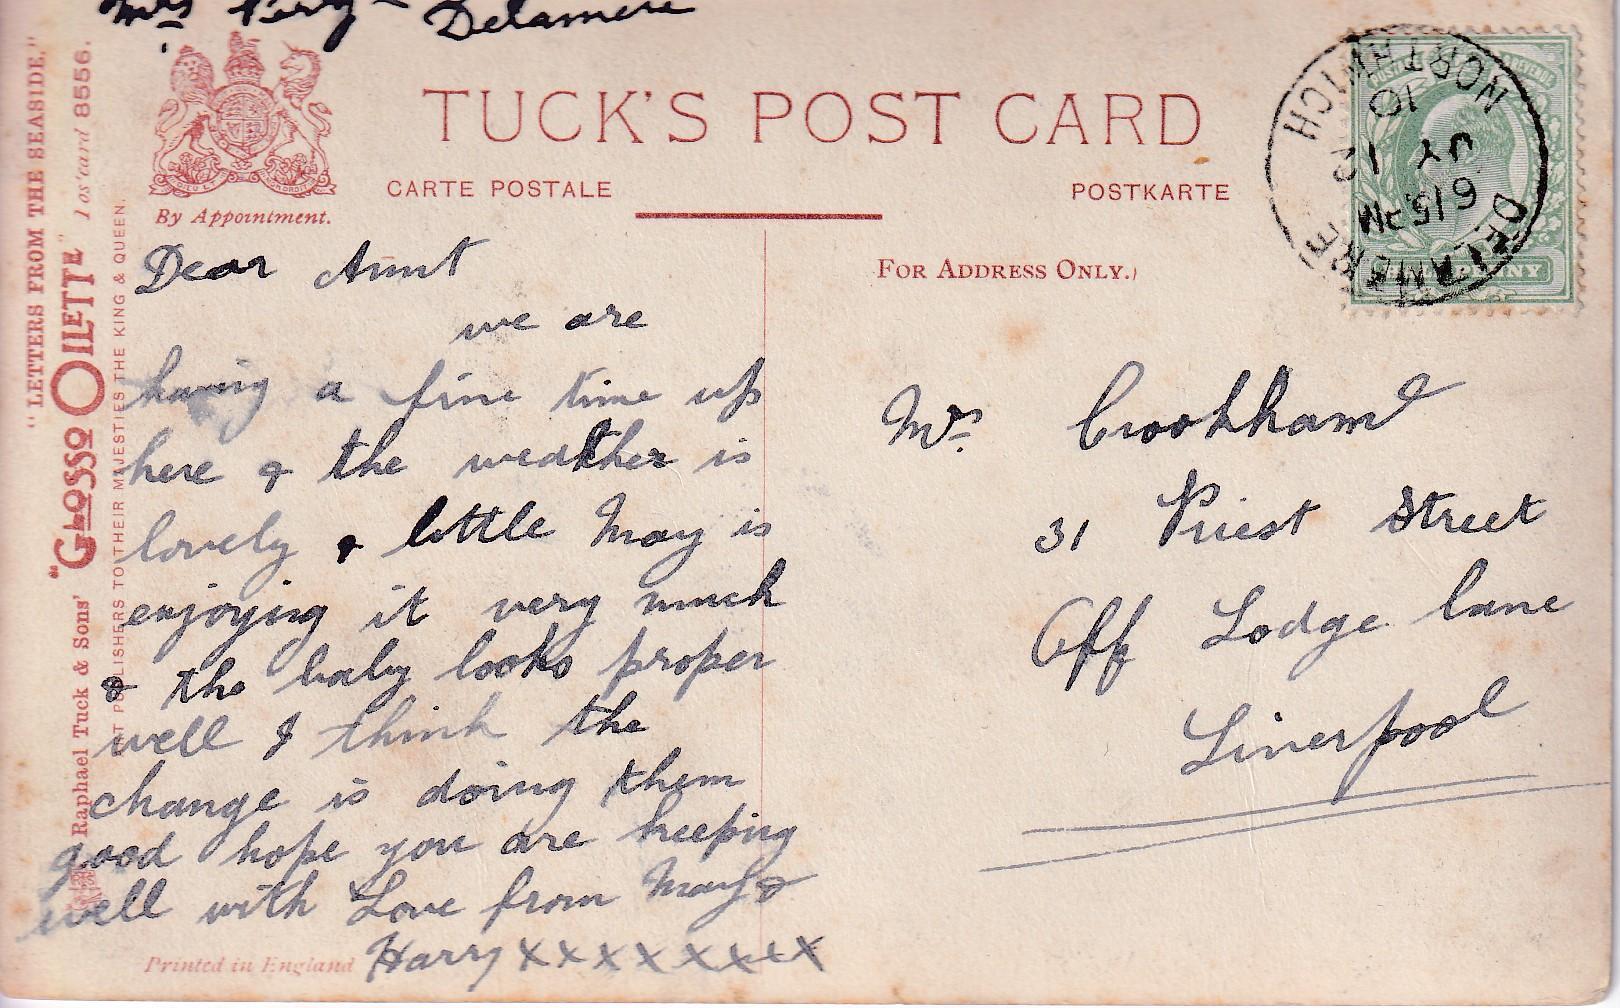 Mrs Perry Delamere
TUCK'S POST CARD
CARTE POSTALE
POSTKARTE
By Appointment.
FOR ADDRESS ONLY.
"LETTERS FROM THE SEASIDE."
Raphael Tuck & Sons' "GLOSSO OILETTE" Postcard 8556.
ART PUBLISHERS TO THEIR MAJESTIES THE KING & QUEEN.
Printed in England
DELAMERE
NORTHWICH
6 15 PM
JY 12
10
POSTAGE REVENUE
HALFPENNY
Dear Aunt
we are
having a fine time up
here & the weather is
lovely & little May is
enjoying it very much
& the baby looks proper
well I think the
change is doing them
good hope you are keeping
well with Love from May &
Harry xxxxxxxx
Mrs Crookham
31 Priest Street
Off Lodge lane
Liverpool